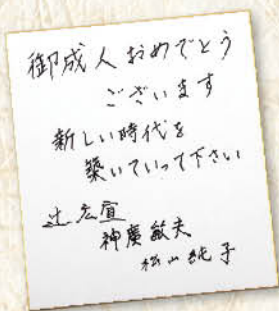 御成人おめでとう
ございます
新しい時代を
築いていって下さい
辻 広宣
神廣敏夫
松山純子